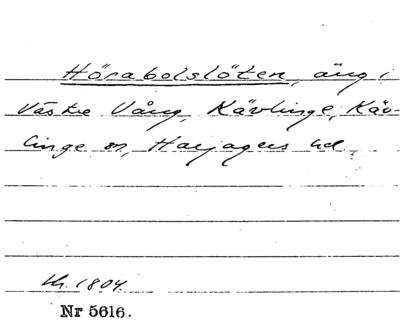 Hörabolslöten, äng i
Västra Vång, Kävlinge, Käv-
linge sn, Harjagers hd.
1804.
Nr 5616.